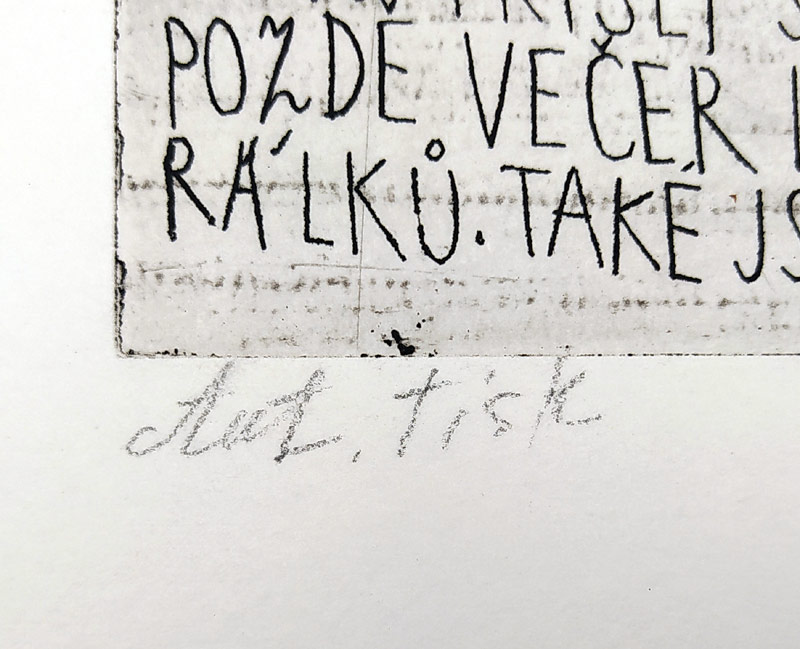 POZDĚ VEČER
RÁLKŮ. TAKÉ JS
Aut. tisk